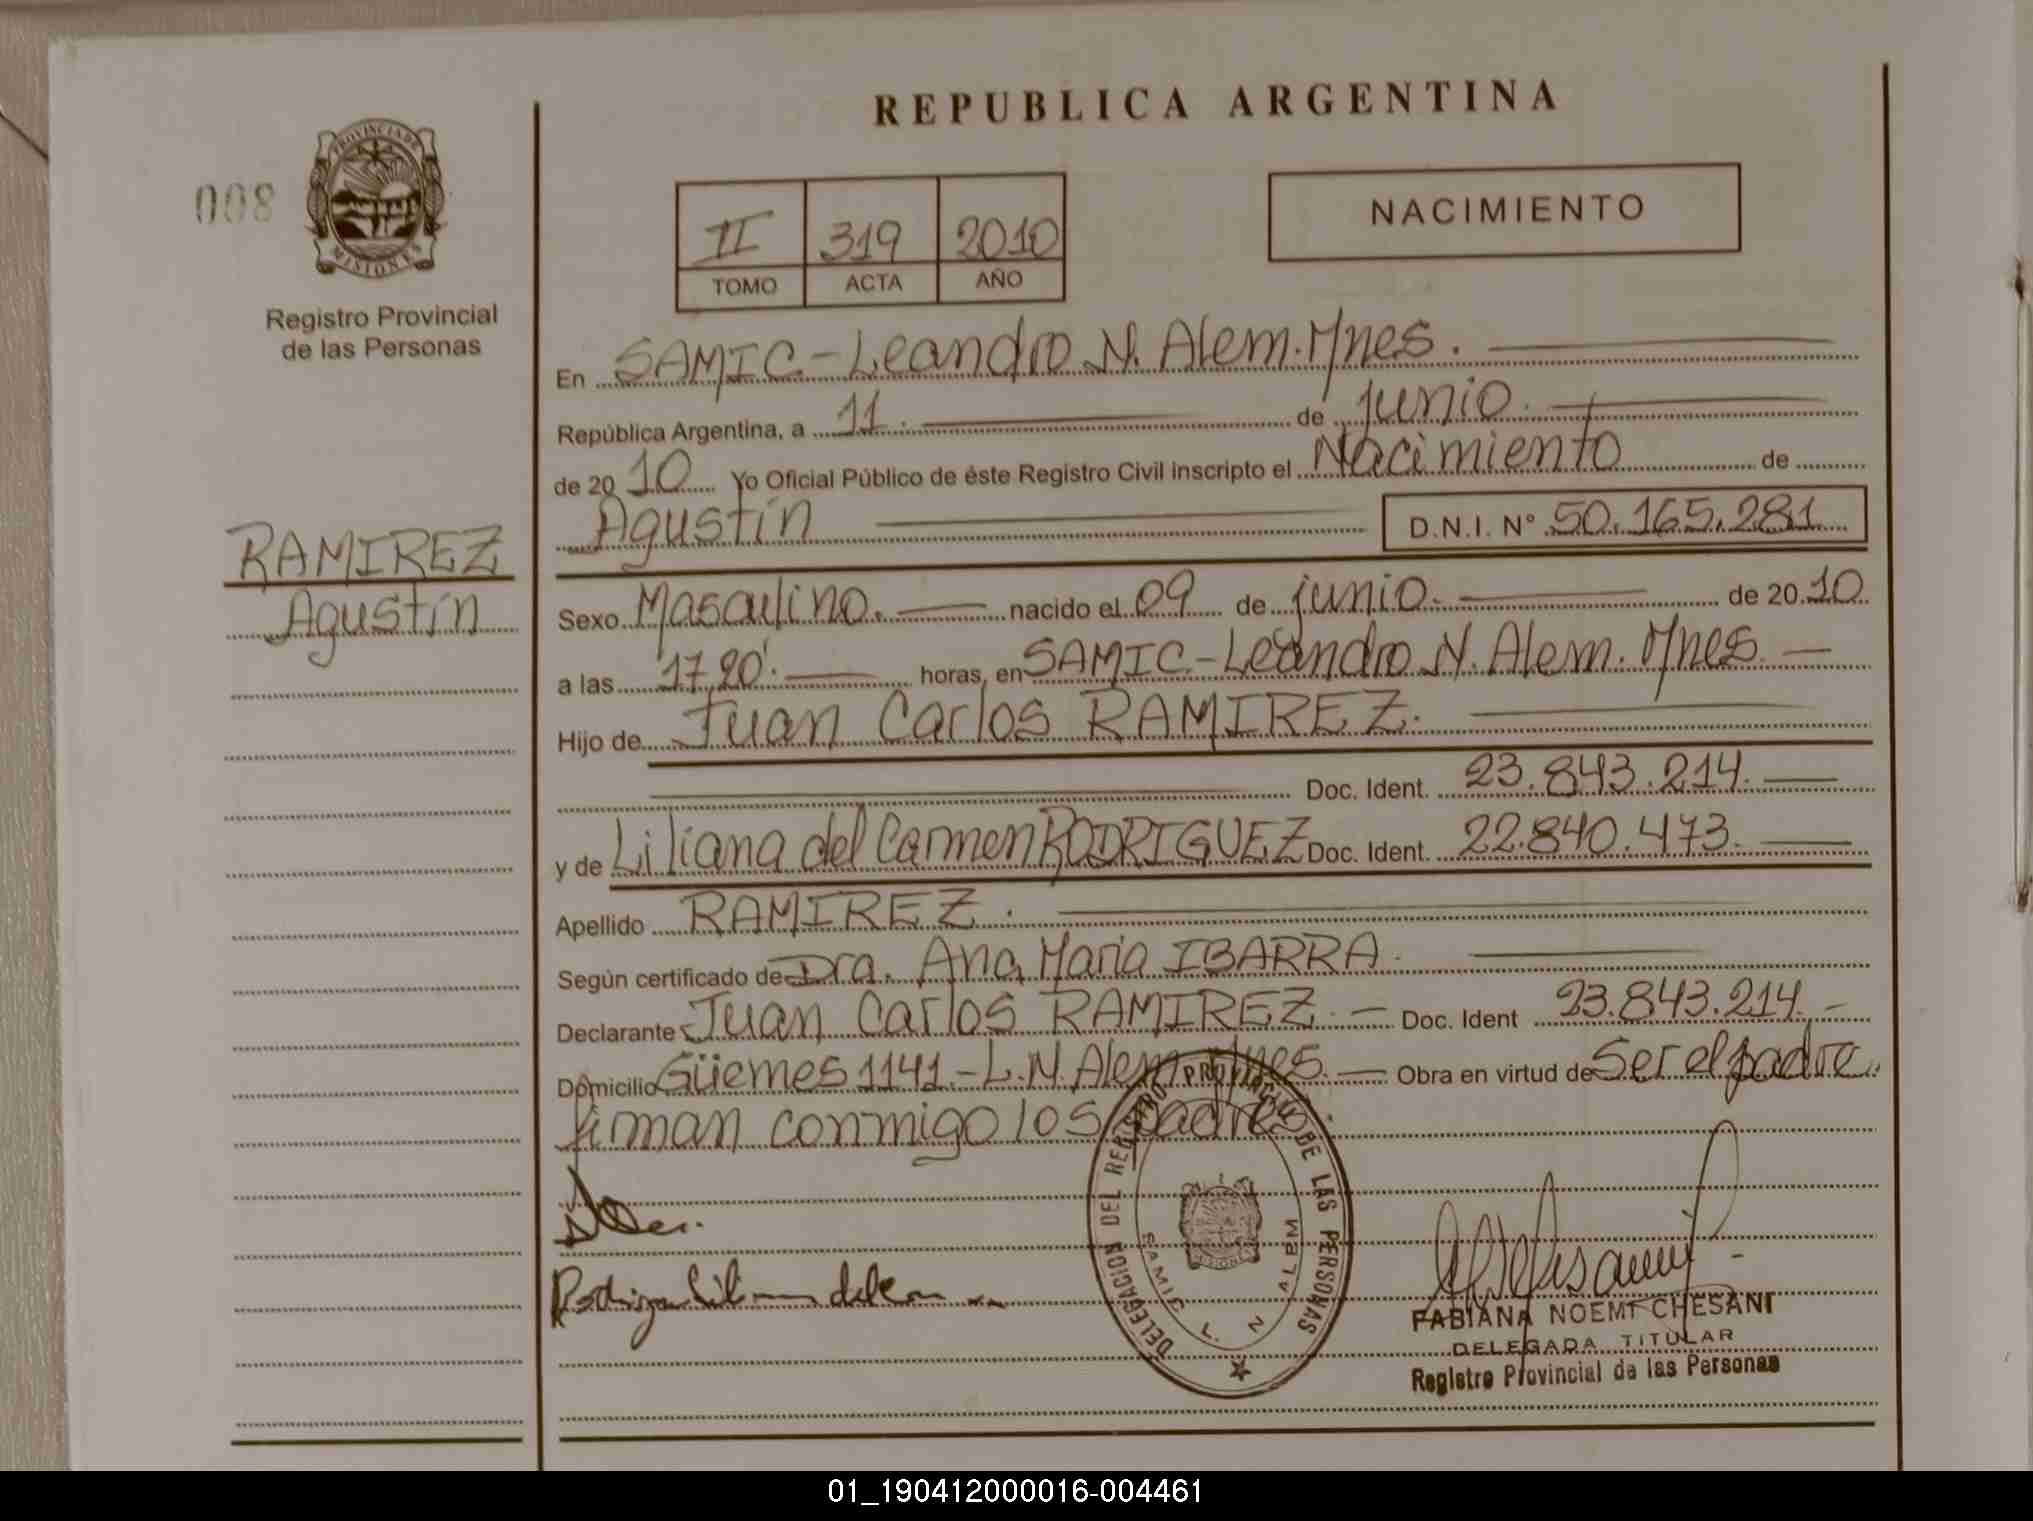 REPUBLICA ARGENTINA
008
PROVINCIA DE
MISIONES
Registro Provincial
de las Personas
II 319 2010
TOMO ACTA AÑO
NACIMIENTO
En SAMIC-Leandro N. Alem. Mnes.
República Argentina, a 11. de junio.
de 2010 Yo Oficial Público de éste Registro Civil inscripto el Nacimiento de
Agustín D.N.I. N° 50.165.281
RAMIREZ
Agustín
Sexo Masculino. nacido el 09 de junio. de 2010
a las 17,20'. horas, en SAMIC-Leandro N. Alem. Mnes.
Hijo de Juan Carlos RAMIREZ.
Doc. Ident. 23.843.214.
y de Liliana del Carmen RODRIGUEZ Doc. Ident. 22.840.473.
Apellido RAMIREZ.
Según certificado de Dra. Ana Maria IBARRA.
Declarante Juan Carlos RAMIREZ. Doc. Ident 23.843.214.
Domicilio Güemes 1141-L.N. Alem Mnes. Obra en virtud de Ser el padre.
firman conmigo los padres.
DELEGACION DEL REGISTRO PROVINCIAL DE LAS PERSONAS
SAMIC L. N ALEM
FABIANA NOEMI CHESANI
DELEGADA TITULAR
Registro Provincial de las Personas
01_190412000016-004461